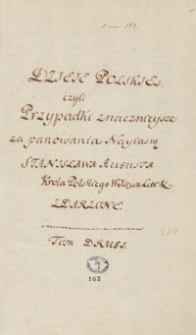 DZIEIE POLSKIE
czyli
Przypadki znacznieysze
za panowania Nayiasn
STANISŁAWA AUGUSTA
Króla Polskiego
ZDARZONE.
Tom DRUGI.
163